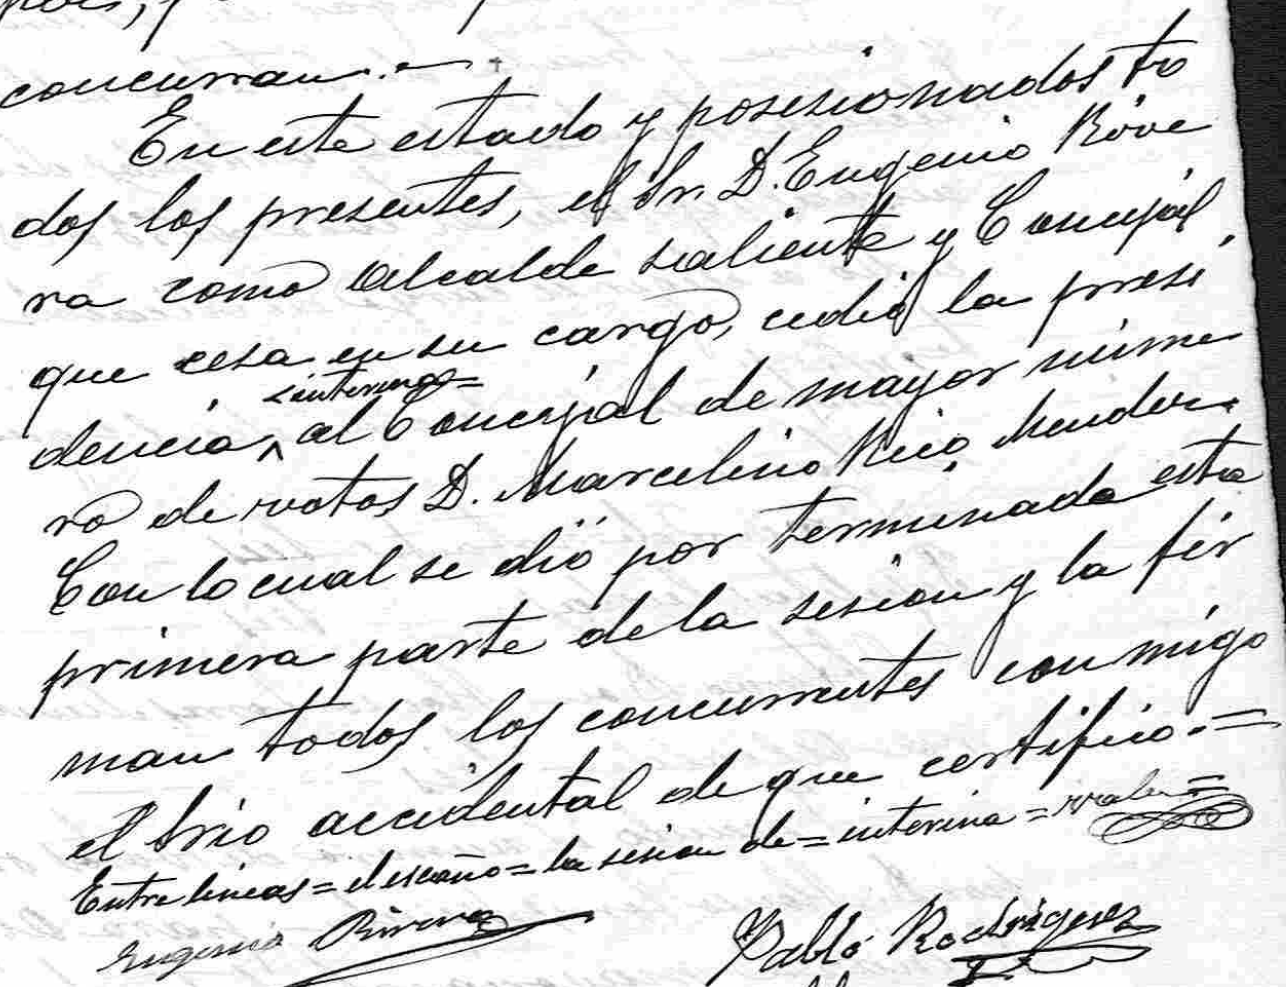 concurran.=
En este estado y posesionados to
dos los presentes, el Sr. D. Eugenio Rive
ra como Alcalde saliente y Concejal
que cesa en su cargo, cedió la presi
=interina=
dencia al Concejal de mayor núme
ro de votos D. Marcelino Rico
Con lo cual se dió por terminada esta
primera parte de la sesion y la fir
man todos los concurrentes conmigo
el Srio accidental de que certifico.=
Entre lineas= el escaño= la sesion de= interina= vale=
Eugenio Rivera Pablo Rodriguez